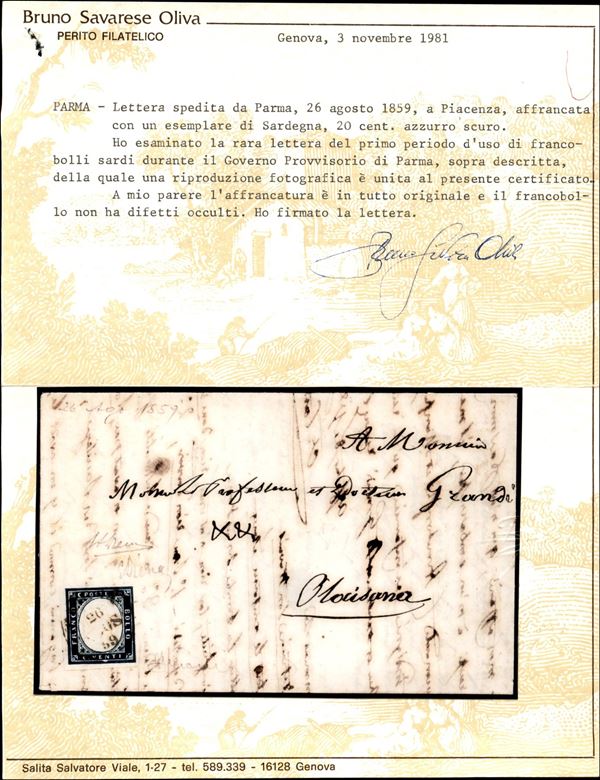 Bruno Savarese Oliva
PERITO FILATELICO
Genova, 3 novembre 1981
PARMA - Lettera spedita da Parma, 26 agosto 1859, a Piacenza, affrancata
con un esemplare di Sardegna, 20 cent. azzurro scuro.
Ho esaminato la rara lettera del primo periodo d'uso di franco-
bolli sardi durante il Governo Provvisorio di Parma, sopra descritta,
della quale una riproduzione fotografica è unita al presente certificato.
A mio parere l'affrancatura è in tutto originale e il francobol-
lo non ha difetti occulti. Ho firmato la lettera.
26 Ago 1859
A Monsieur
Professeur et Docteur Grandi
XX
Plaisance
C POSTE
FRANCO
BOLLO
26
59
Salita Salvatore Viale, 1-27 - tel. 589.339 - 16128 Genova